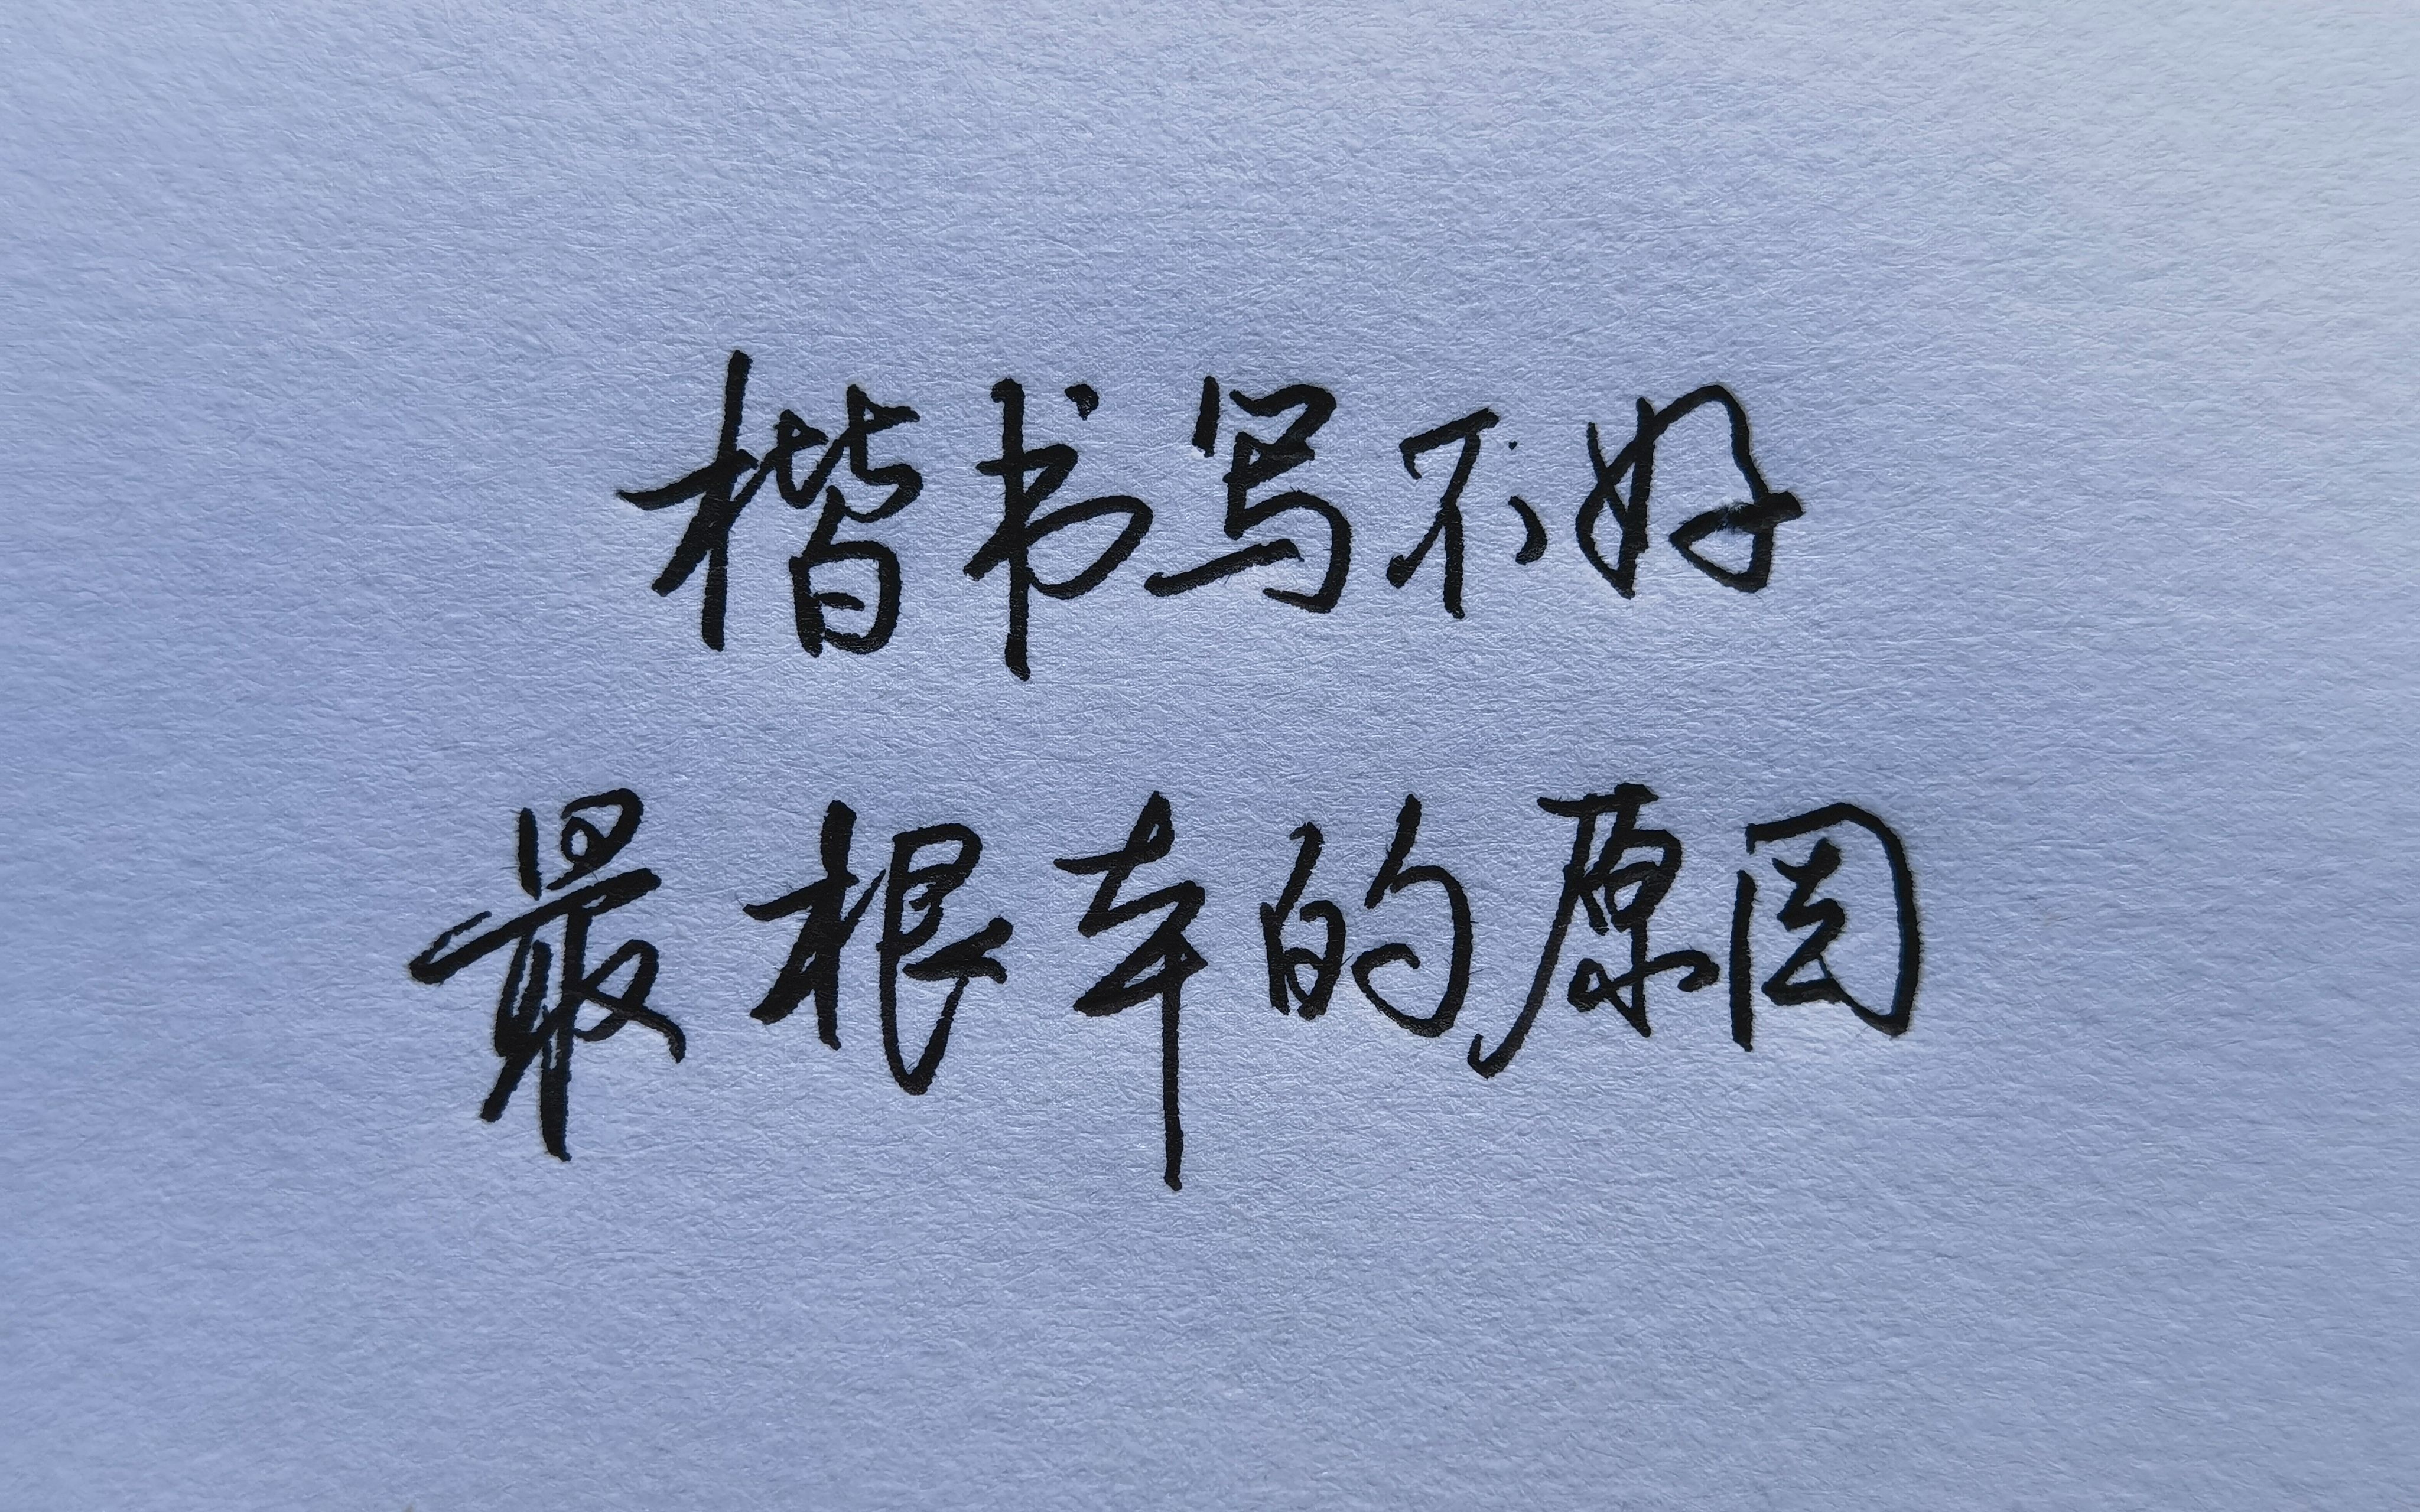 楷书写不好
最根本的原因